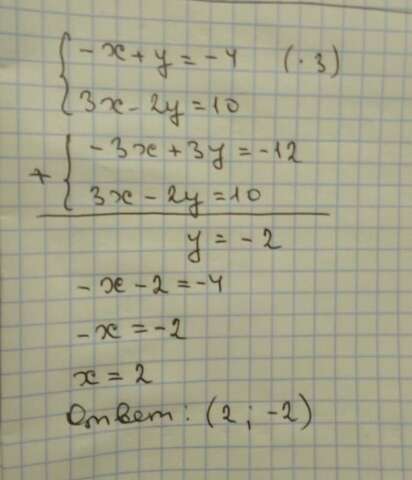 -x + y = -4 (·3)
3x - 2y = 10
-3x + 3y = -12
+
3x - 2y = 10
y = -2
-x - 2 = -4
-x = -2
x = 2
Ответ: (2; -2)